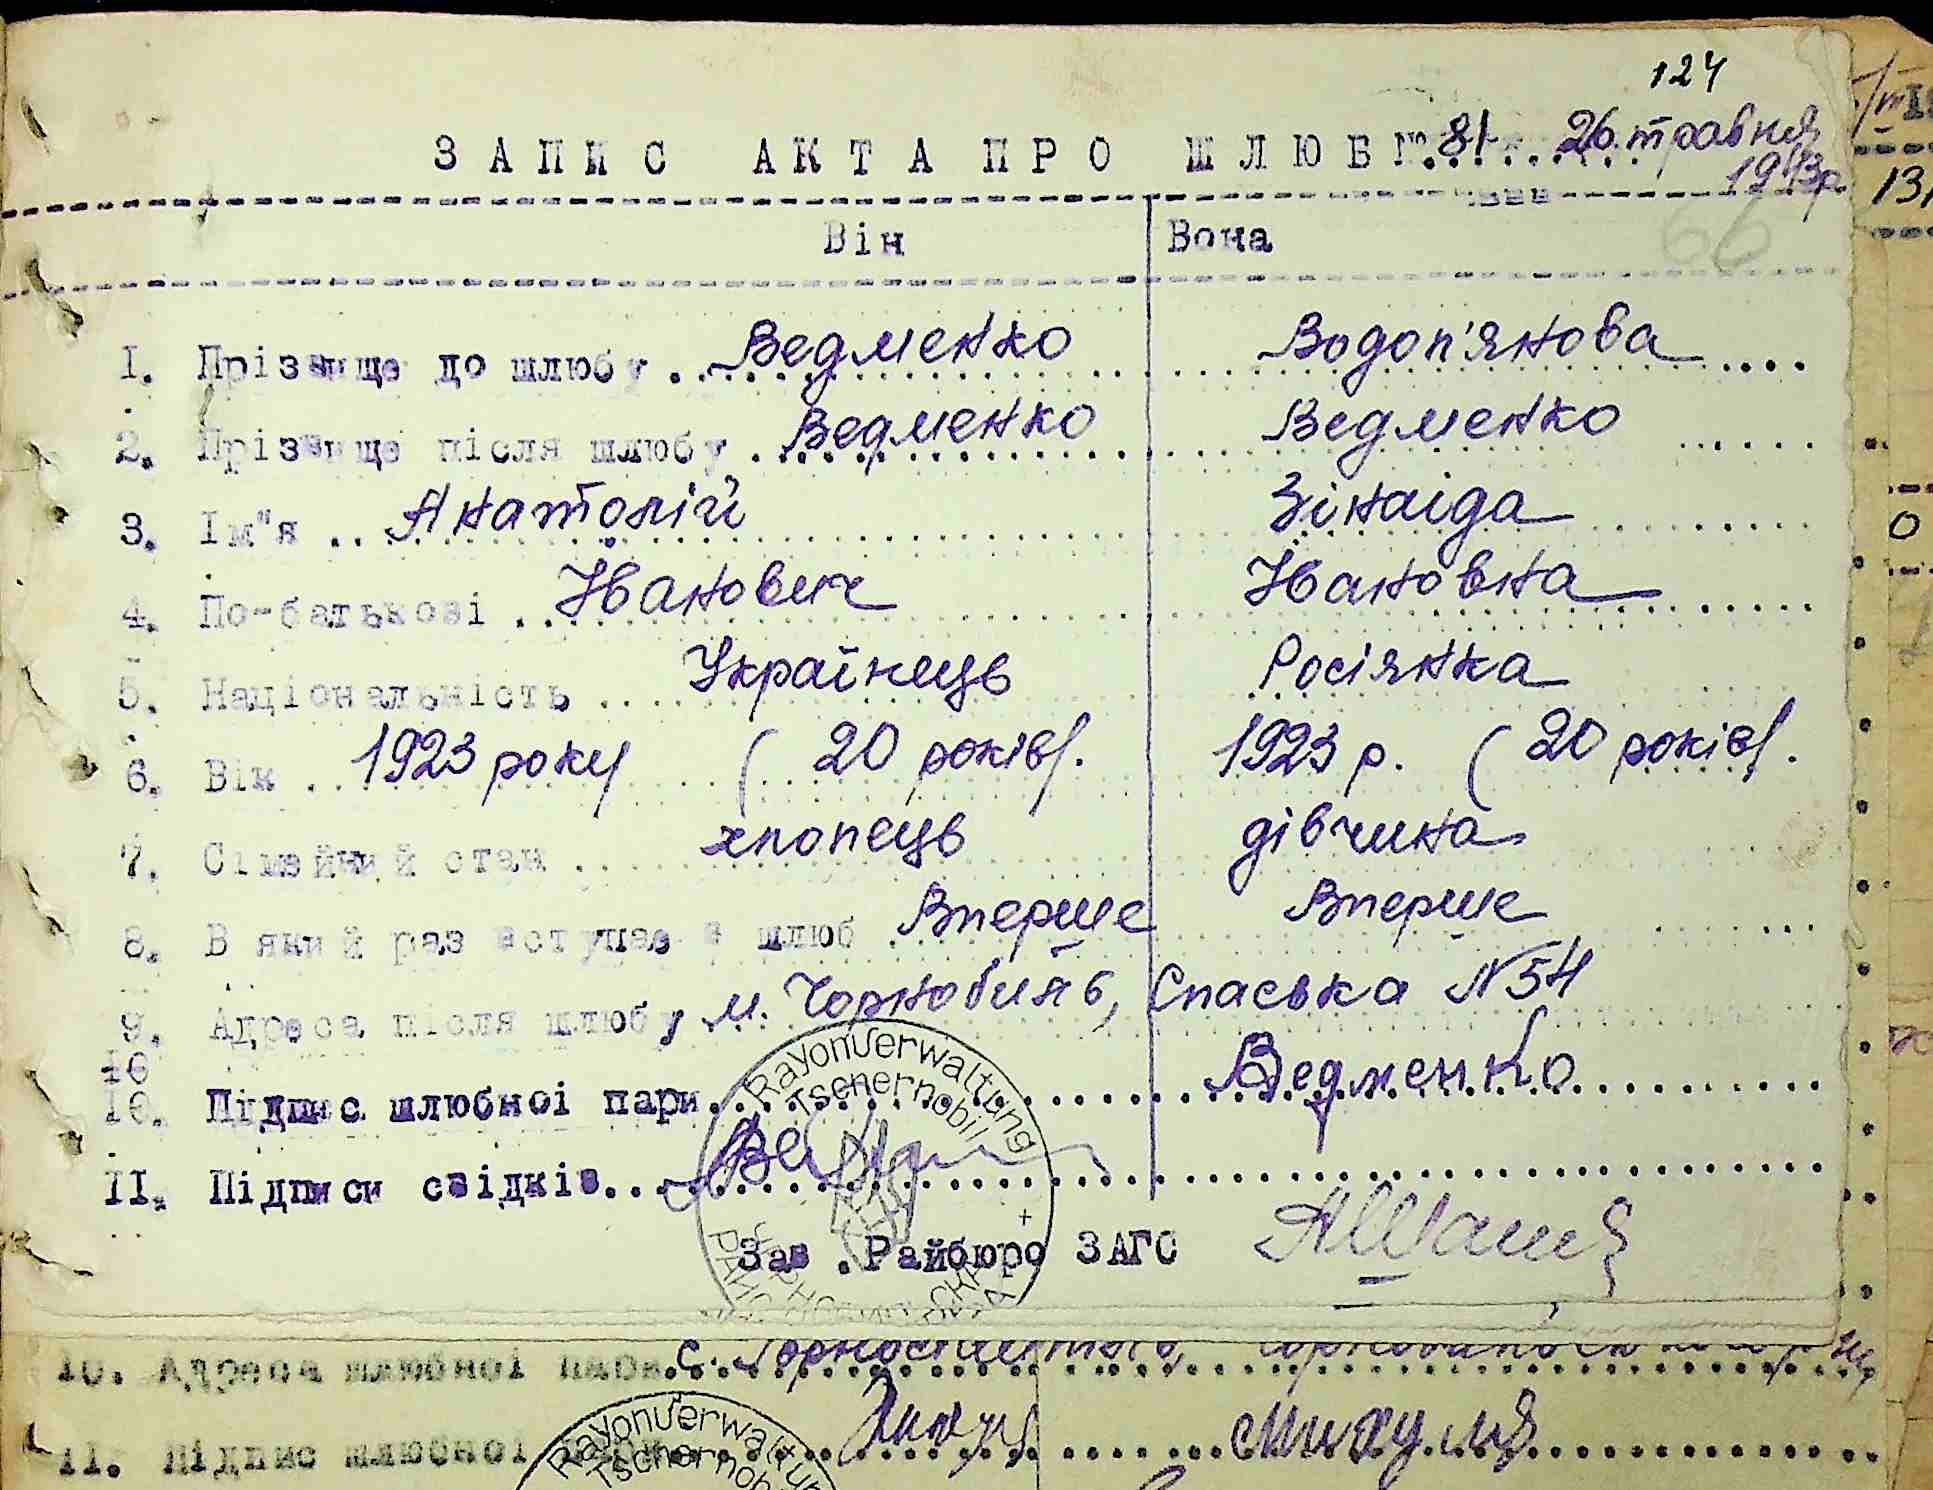 124
ЗАПИС АКТА ПРО ШЛЮБ № 81 26 травня
1943р.
66
Він Вона
1. Прізвище до шлюбу Ведменко Водоп'янова
2. Прізвище після шлюбу Ведменко Ведменко
3. Ім"я Анатолій Зінаіда
4. По-батькові Іванович Івановна
5. Національність Українець Росіянка
6. Вік 1923 року (20 років). 1923 р. (20 років).
7. Сімейний стан хлопець дівчина
8. В який раз вступає в шлюб Вперше Вперше
9. Адреса після шлюбу м. Чорнобиль, Спаська №54
10
10. Підпис шлюбної пари Ведменко
Rayonverwaltung
Tschernobil
11. Підписи свідків
Зав. Райбюро ЗАГС
10. Адреса шлюбної пари с.
11. Підпис шлюбної
Rayonverwaltun
Tschernob